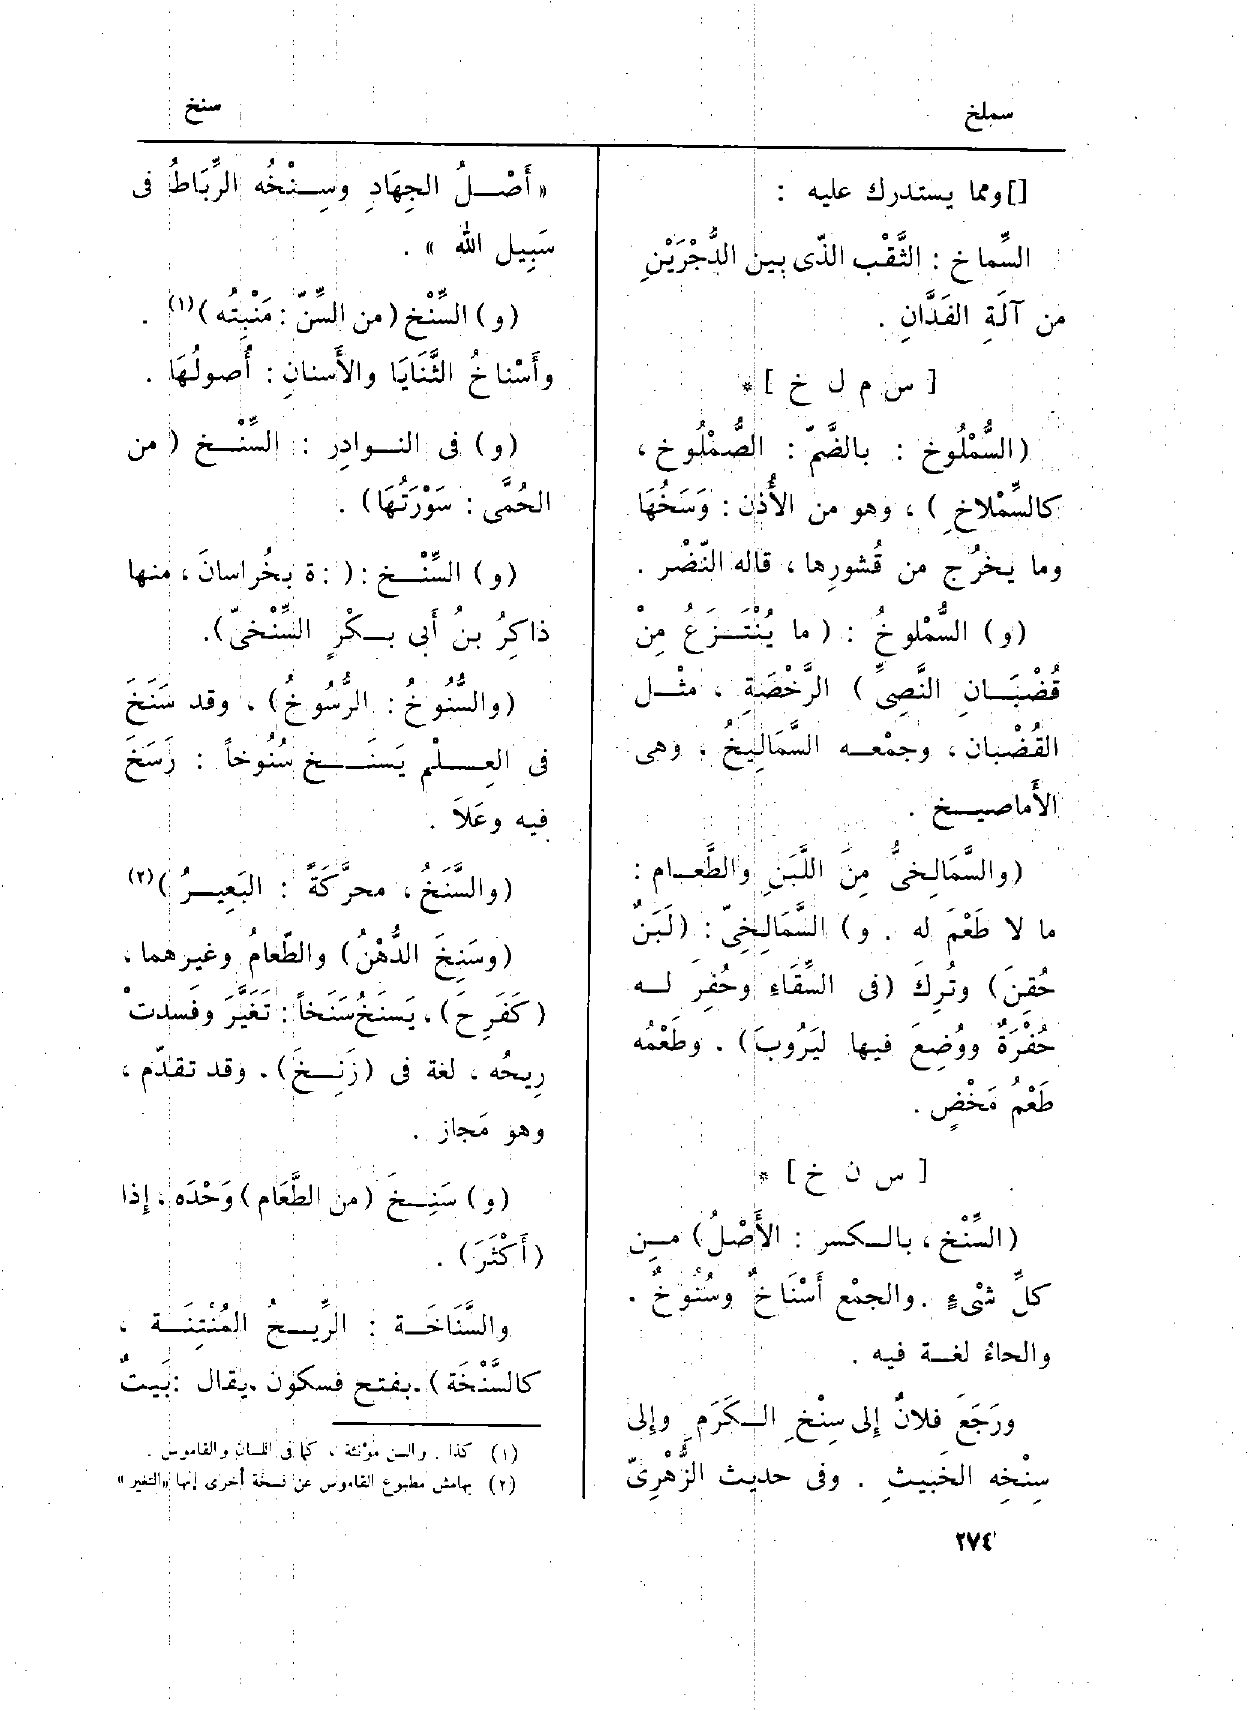 سملخ
سنخ
[] ومما يستدرك عليه :
السِّماخ : الثَّقْب الذّى بين الدُّجْرَيْنِ
من آلَةِ الفَدَّانِ .
[ س م ل خ ] *
(السُّمْلُوخ : بالضَّمّ : الصُّمْلُوخ ،
كالسِّمْلاخِ ) ، وهو من الأُذن : وَسَخُهَا
وما يخرُج من قُشورِها ، قاله النّضْر .
(و) السُّمْلوخُ : ( ما يُنْتَـزَعُ مِنْ
قُضْبَـانِ النَّصِىِّ ) الرَّخْصَةِ ، مثْـل
القُضْبان ، وجمْعـه السَّمَالِيخُ ، وهى
الأَماصيـخ .
(والسَّمَالِخىُّ مِنَ اللَّبَنِ والطَّعـام :
ما لا طَعْمَ له . و) السَّمَالِخِىّ : (لَبَنٌ
حُقِنَ) وتُرِكَ (فى السِّقَاء وحُفِرَ لـه
حُفْرَةٌ ووُضِعَ فيها ليَرُوبَ) . وطَعْمُه
طَعْمُ مَخْضٍ .
[ س ن خ ] *
(السِّنْخ ، بالـكسر : الأَصْلُ) مـن
كلِّ شىْءٍ . والجمْع أَسْنَاخٌ وسُنُوخٌ .
والحاءُ لغـة فيه .
ورَجَعَ فلانٌ إلى سِنْخِ الـكَرَمِ وإلى
سِنْخِه الخَبيثِ . وفى حديث الزُّهْرِىّ
« أَصْـلُ الجِهَادِ وسِـنْخُه الرِّبَاطُ فى
سَبِيل اللّٰه » .
(و) السِّنْخ (من السِّنّ : مَنْبِتُه )(١) .
وأَسْناخُ الثَّنَايَا والأَسنانِ : أُصولُهَا .
(و) فى النـوادِر : السِّنْـخ ( من
الحُمَّى : سَوْرَتُهَا) .
(و) السِّنْـخ : ( : ة بخُراسانَ ، منها
ذاكِرُ بنُ أَبى بـكْرٍ السِّنْخىّ).
(والسُّنُوخُ : الرُّسُوخُ) ، وقد سَنَخَ
فى العِـلْم يَسنَـخ سُنُوخاً : رَسَخَ
فيه وعَلاَ .
(والسَّنَخُ ، محرَّكَةً : البَعِيـرُ )(٢)
(وسَنِخَ الدُّهْنُ) والطّعامُ وغيرهما ،
(كَفَرِحَ) ، يَسنَخُ سَنَخاً : تَغيَّرَ وفَسدتْ
رِيحُه ، لغة فى (زَنِـخَ) . وقد تقدّم ،
وهو مَجاز .
(و) سَنِـخَ (من الطَّعَام) وَحْدَه ، إذا
(أَكْثَرَ) .
والسَّنَاخَـة : الرِّيـحُ المُنْتِنَـة ،
كالسَّنْخَة ) . بفتح فسكون . يقال : بَيتٌ
(١) كذا . والسن مؤنثة ، كما فى اللسان والقاموس .
(٢) بهامش مطبوع القاموس عن نسخة أخرى إنها «التغير»
٢٧٤